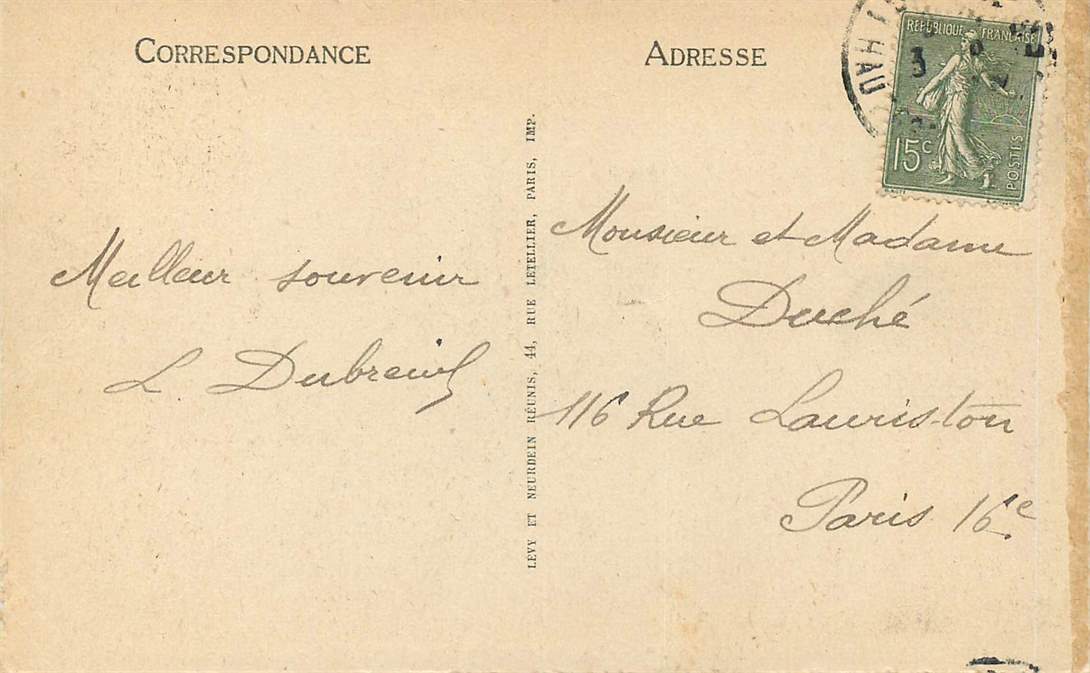 CORRESPONDANCE
Meilleur souvenir
L Dubreuil
LEVY ET NEURDEIN RÉUNIS, 44, RUE LETELLIER, PARIS, IMP.
ADRESSE
REPUBLIQUE FRANÇAISE
15c
POSTES
Monsieur et Madame
Duché
116 Rue Lauriston
Paris 16e